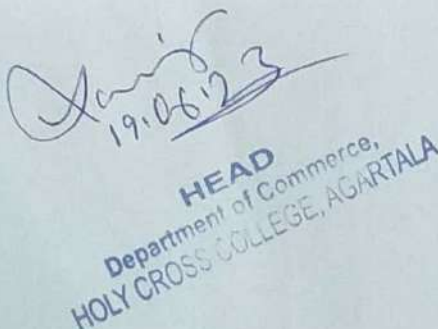 19.06.23
HEAD
Department of Commerce,
HOLY CROSS COLLEGE, AGARTALA